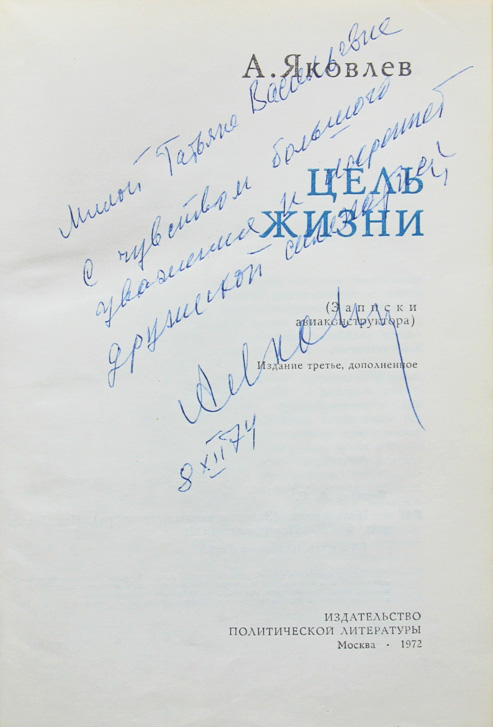 А. Яковлев
Милой Татьяне Васильевне
с чувством большого
уважения и искренней
дружеской симпатией
ЦЕЛЬ
ЖИЗНИ
(Записки
авиаконструктора)
Издание третье, дополненное
8 XII 74
ИЗДАТЕЛЬСТВО
ПОЛИТИЧЕСКОЙ ЛИТЕРАТУРЫ
Москва · 1972